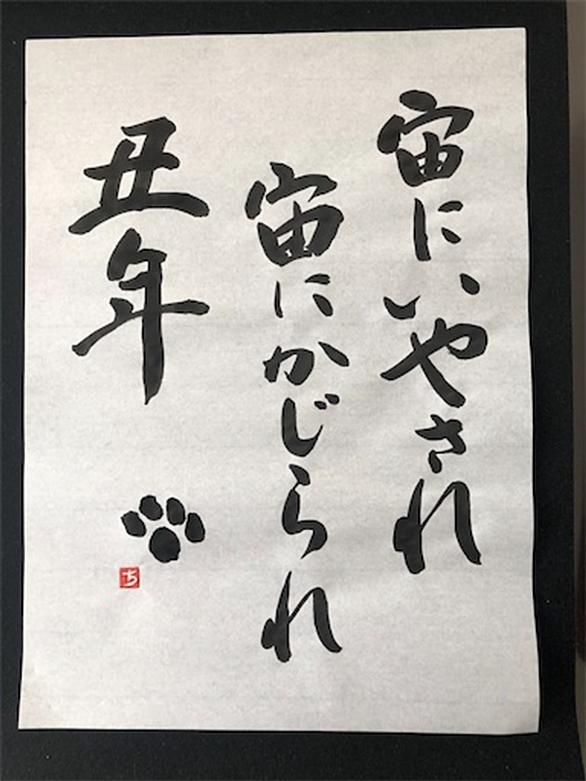 宙にいやされ
宙にかじられ
丑年
ち